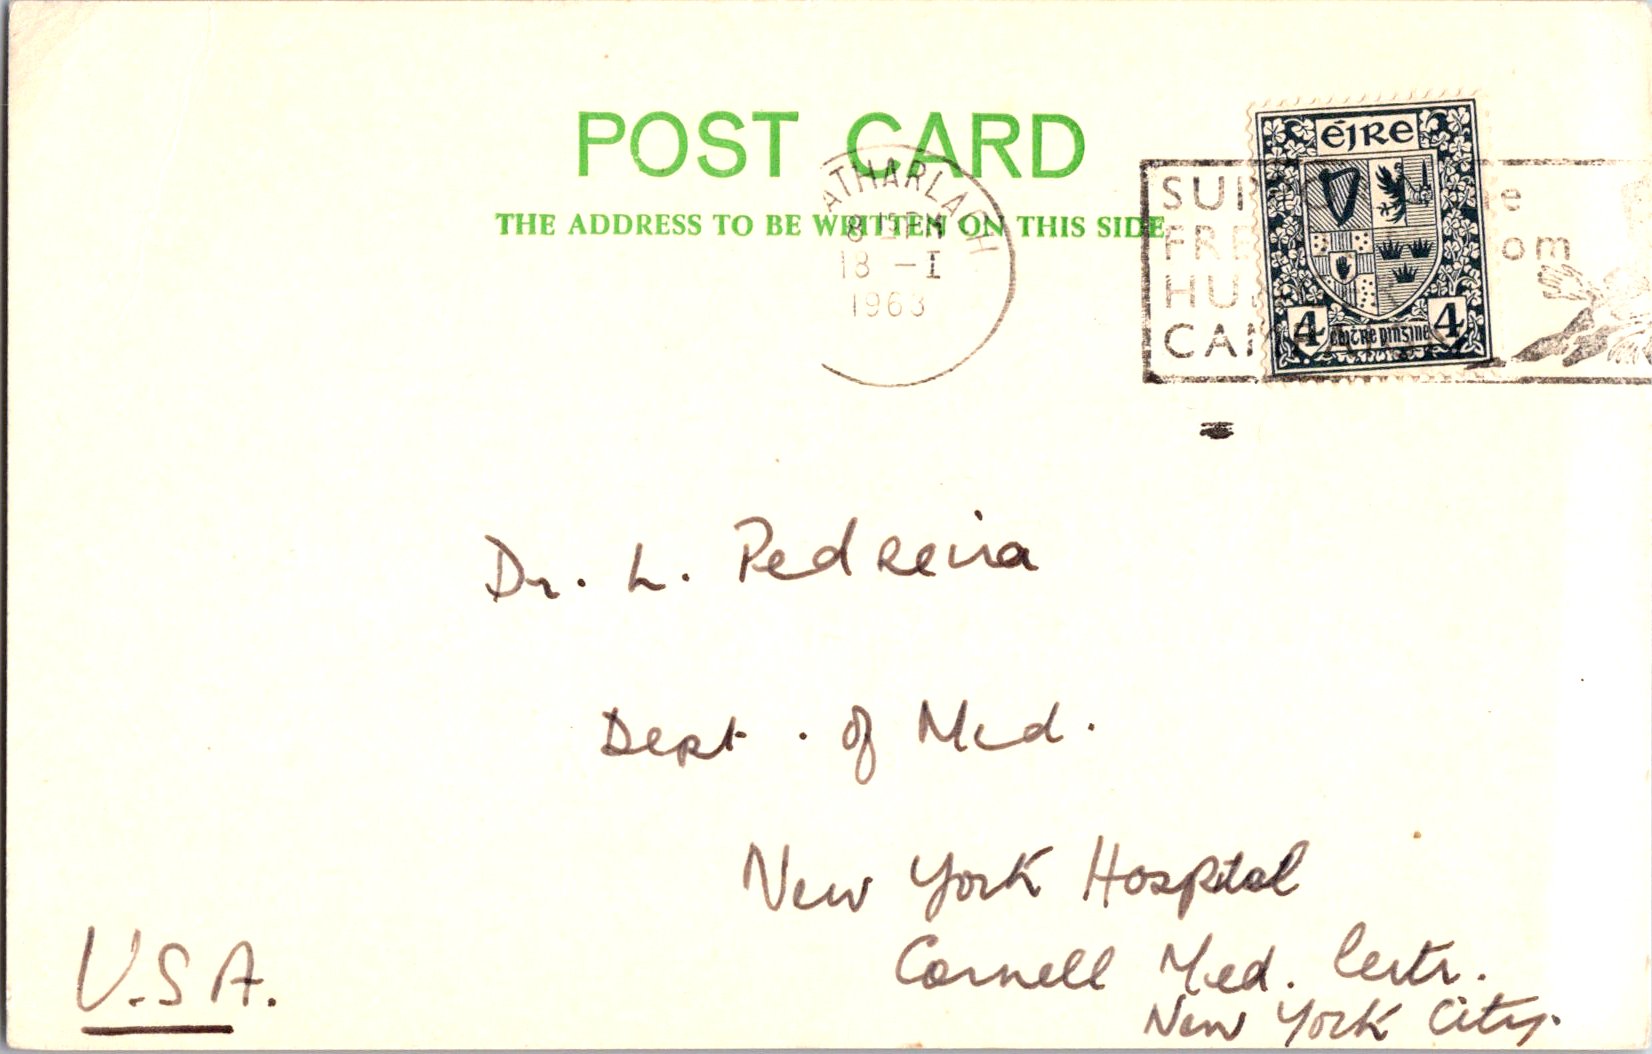 POST CARD
THE ADDRESS TO BE WRITTEN ON THIS SIDE
ATHARLACH
18 -I
1963
ÉIRE
4 4
SUP
FRE om
HU
CAM
Dr. L. Pedreira
Dept. of Med.
New York Hospital
Cornell Med. Centr.
New York City.
U.S.A.